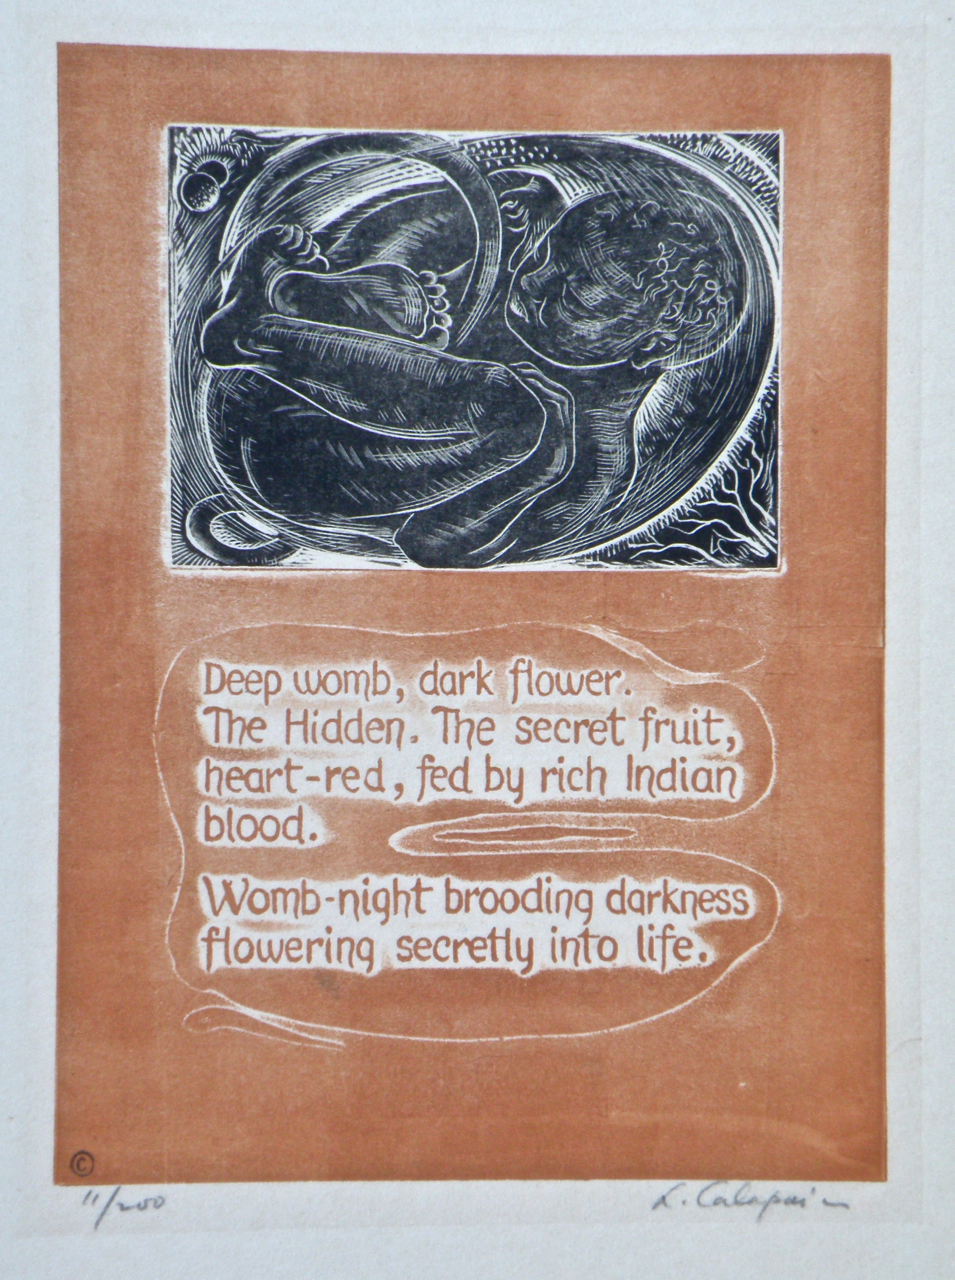 Deep womb, dark flower.
The Hidden. The secret fruit,
heart-red, fed by rich Indian
blood.
Womb-night brooding darkness
flowering secretly into life.
©
11/200
L. Calapai